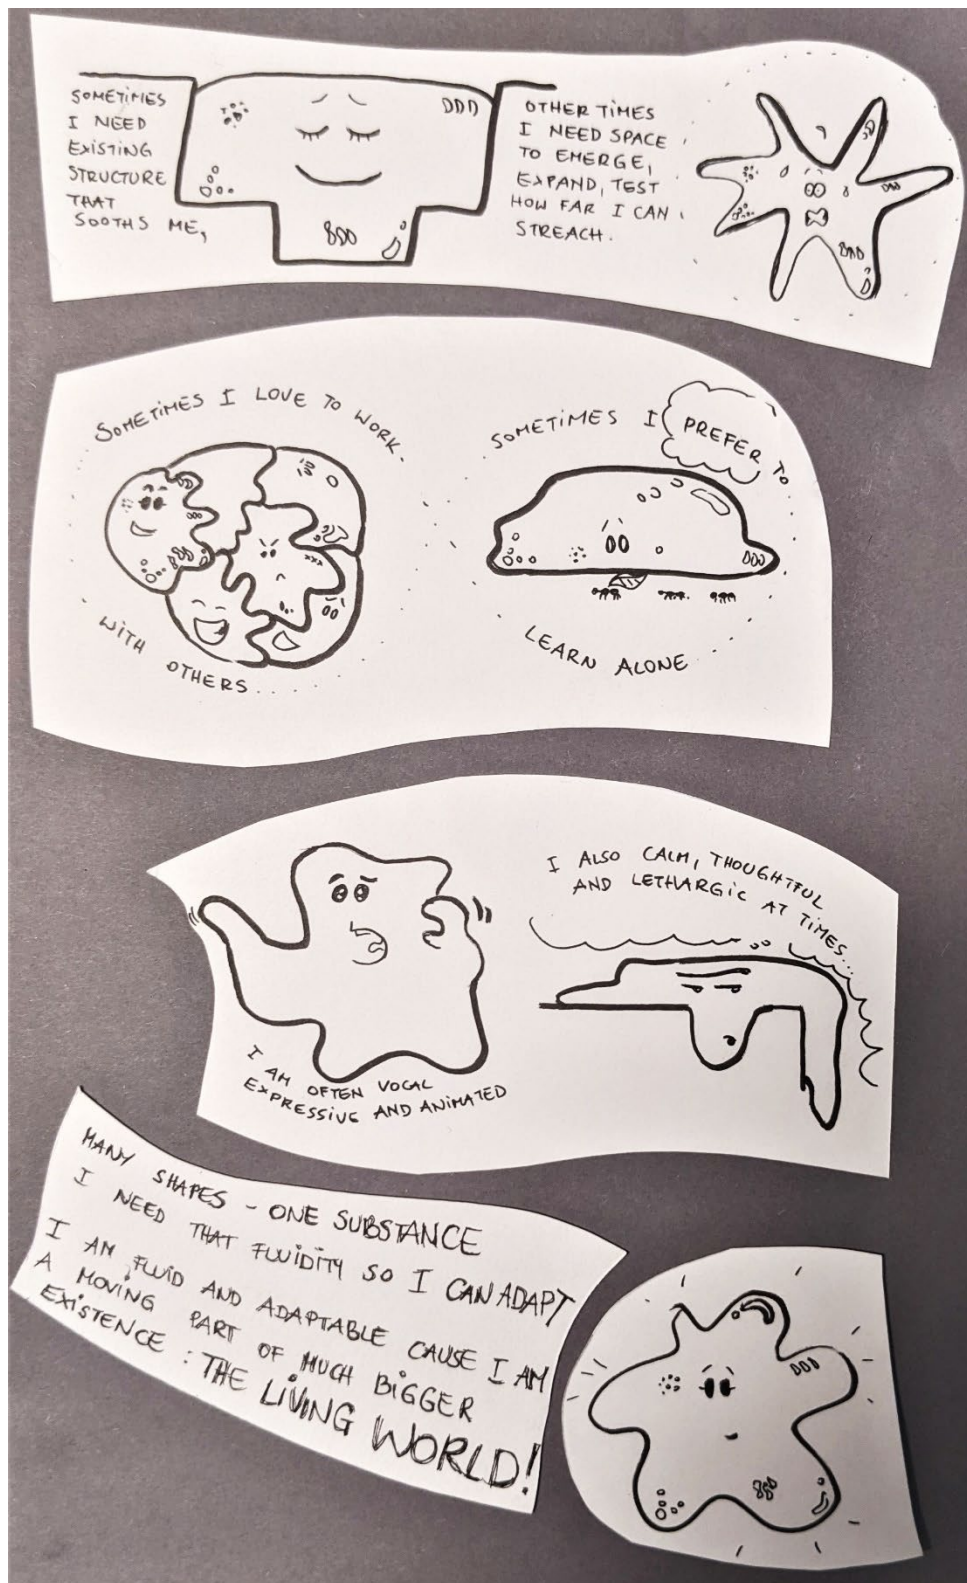 SOMETIMES
I NEED
EXISTING
STRUCTURE
THAT
SOOTHS ME,
OTHER TIMES
I NEED SPACE
TO EMERGE,
EXPAND, TEST
HOW FAR I CAN
STREACH.
SOMETIMES I LOVE TO WORK.
WITH OTHERS....
SOMETIMES I PREFER TO
LEARN ALONE
I AM OFTEN VOCAL
EXPRESSIVE AND ANIMATED
I ALSO CALM, THOUGHTFUL
AND LETHARGIC AT TIMES...
MANY SHAPES - ONE SUBSTANCE
I NEED THAT FLUIDITY SO I CAN ADAPT
I AM FLUID AND ADAPTABLE CAUSE I AM
A MOVING PART OF MUCH BIGGER
EXISTENCE: THE LIVING WORLD!